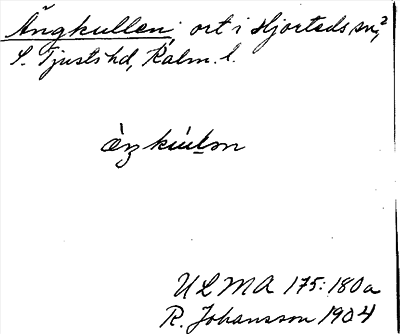 Ängkullen, ort i Hjorteds sn,²
S. Tjusts hd, Kalm. l.
ULMA 175:180a
R. Johansson 1904